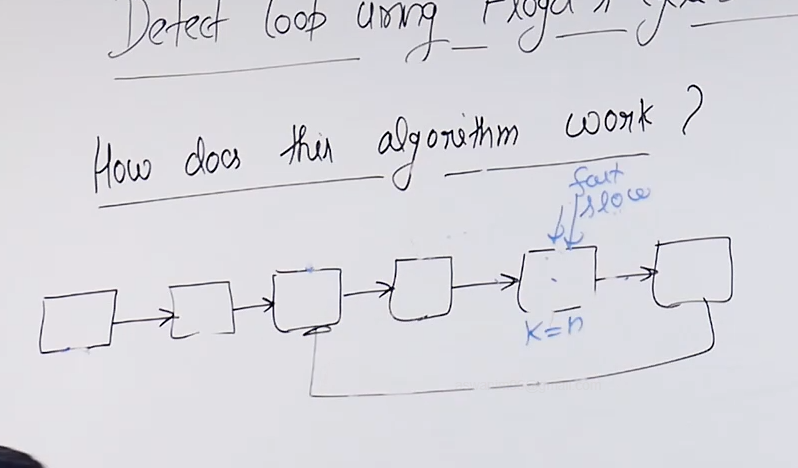 Detect loop using Floyd's
How does this algorithm work ?
fast
slow
K=n